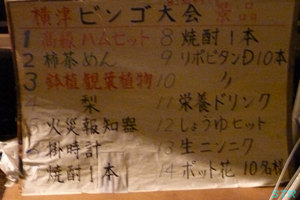 横津 ビンゴ大会 景品
1 高級ハムセット
2 柿茶めん
3 鉢植観葉植物
4 梨
5 火災報知器
6 掛時計
7 焼酎1本
8 焼酎1本
9 リポビタンD10本
10 〃
11 栄養ドリンク
12 しょうゆセット
13 生ニンニク
14 ポット花 10名様